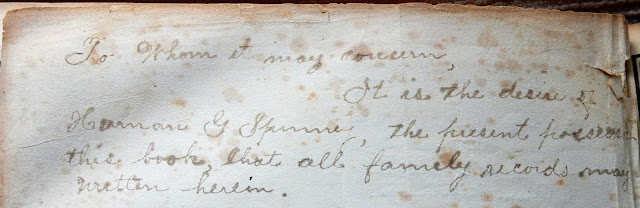 To Whom it may concern,
It is the desire of
Harnan G Spinney, the present possess
this book, that all family records may
written herein.